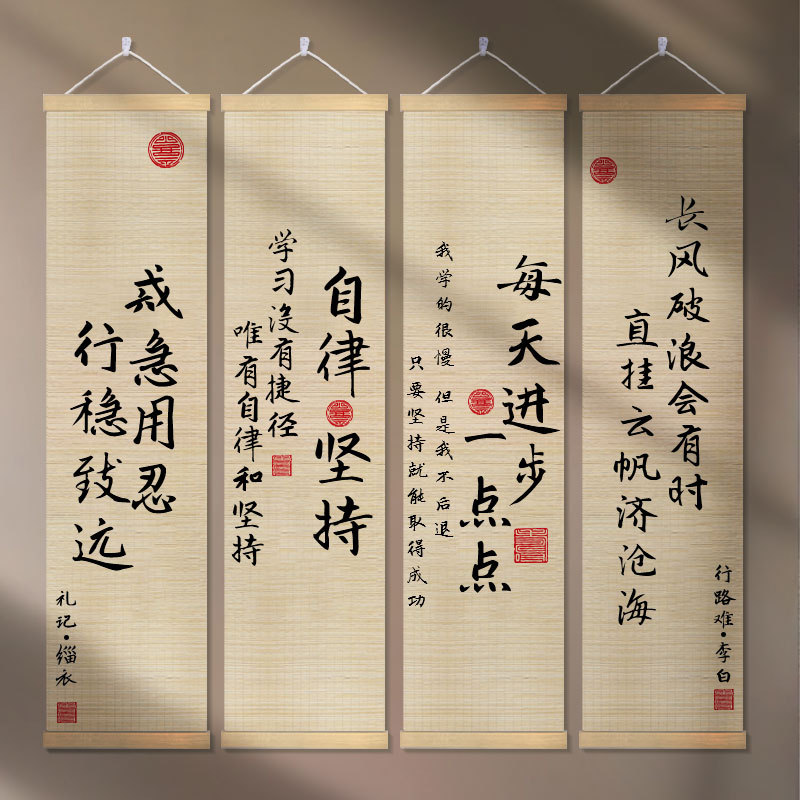 戒急用忍
行稳致远
礼记·缁衣
自律坚持
学习没有捷径
唯有自律和坚持
每天进步
一点点
我学的很慢 但是我不后退
只要坚持就能取得成功
长风破浪会有时
直挂云帆济沧海
行路难·李白